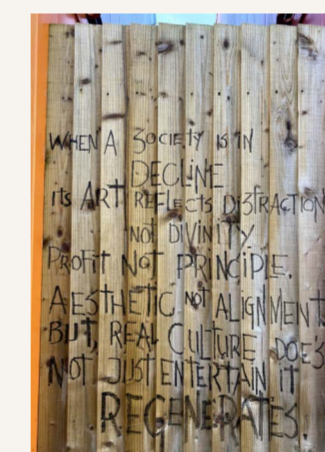 WHEN A SOCIETY IS IN
DECLINE
ITS ART REFLECTS DISTRACTION
NOT DIVINITY.
PROFIT NOT PRINCIPLE.
AESTHETIC NOT ALIGNMENT
BUT, REAL CULTURE DOES
NOT JUST ENTERTAIN IT
REGENERATES.